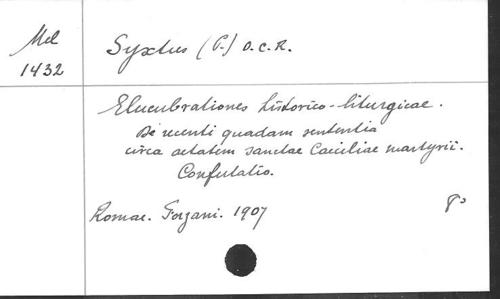 Mel
1432
Syxtus (P.) O.C.R.
Elucubrationes historico-liturgicae.
De recenti quadam sententia
circa aetatem sanctae Caeciliae martyrii.
Confutatio.
Romae. Forzani. 1907
8º